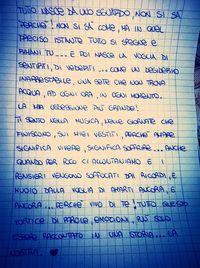 TUTTO NASCE DA UNO SGUARDO, NON SI SA
PERCHÉ! NON SI SA COME, MA IN QUEL
PRECISO ISTANTE TUTTO SI SPEGNE E
RIMANI TU... E POI NASCE LA VOGLIA DI
SENTIRTI, DI VEDERTI... COME UN DESIDERIO
INARRESTABILE, UNA SETE CHE NON TROVA
ACQUA, AD OGNI ORA, IN OGNI MOMENTO.
LA MIA OSSESSIONE PIÙ GRANDE!
TI SENTO NELLA MUSICA, NELLE GIORNATE CHE
FINISCONO, SUI MIEI VESTITI, PERCHÉ AMARE
SIGNIFICA VIVERE, SIGNIFICA SOFFRIRE... ANCHE
QUANDO PER POCO CI ALLONTANIAMO E I
PENSIERI VENGONO SOFFOCATI DAI RICORDI, E
MUOIO DALLA VOGLIA DI AMARTI ANCORA, E
ANCORA... PERCHÉ VIVO DI TE! TUTTO QUESTO
VORTICE DI PAROLE, EMOZIONI, PUÒ SOLO
ESSERE RACCONTATO IN UNA STORIA... LA
NOSTRA...